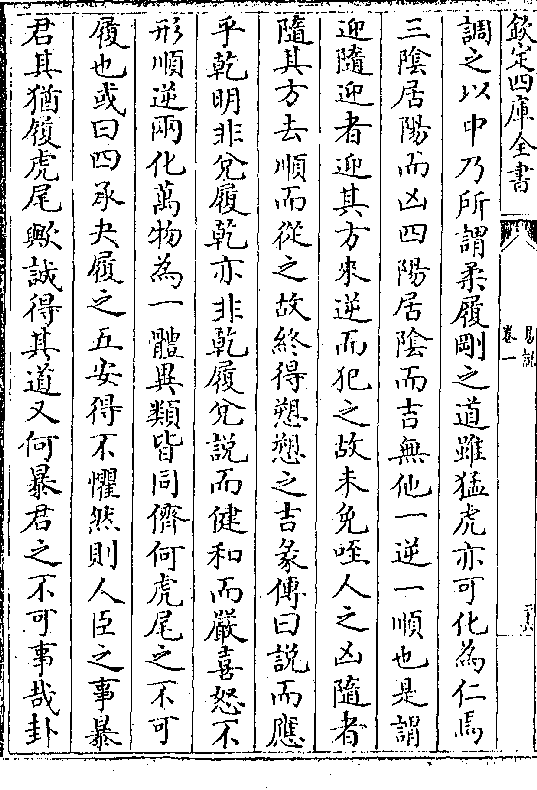 欽定四庫全書
易説
卷一
調之以中乃所謂柔履剛之道雖猛虎亦可化為仁焉
三陰居陽而凶四陽居陰而吉無他一逆一順也是謂
迎隨迎者迎其方來逆而犯之故未免咥人之凶隨者
隨其方去順而從之故終得愬愬之吉彖傳曰説而應
乎乾明非兌履乾亦非乾履兌説而健和而嚴喜怒不
形順逆兩化萬物為一體異類皆同儕何虎尾之不可
履也或曰四承夬履之五安得不懼然則人臣之事暴
君其猶履虎尾歟誠得其道又何暴君之不可事哉卦